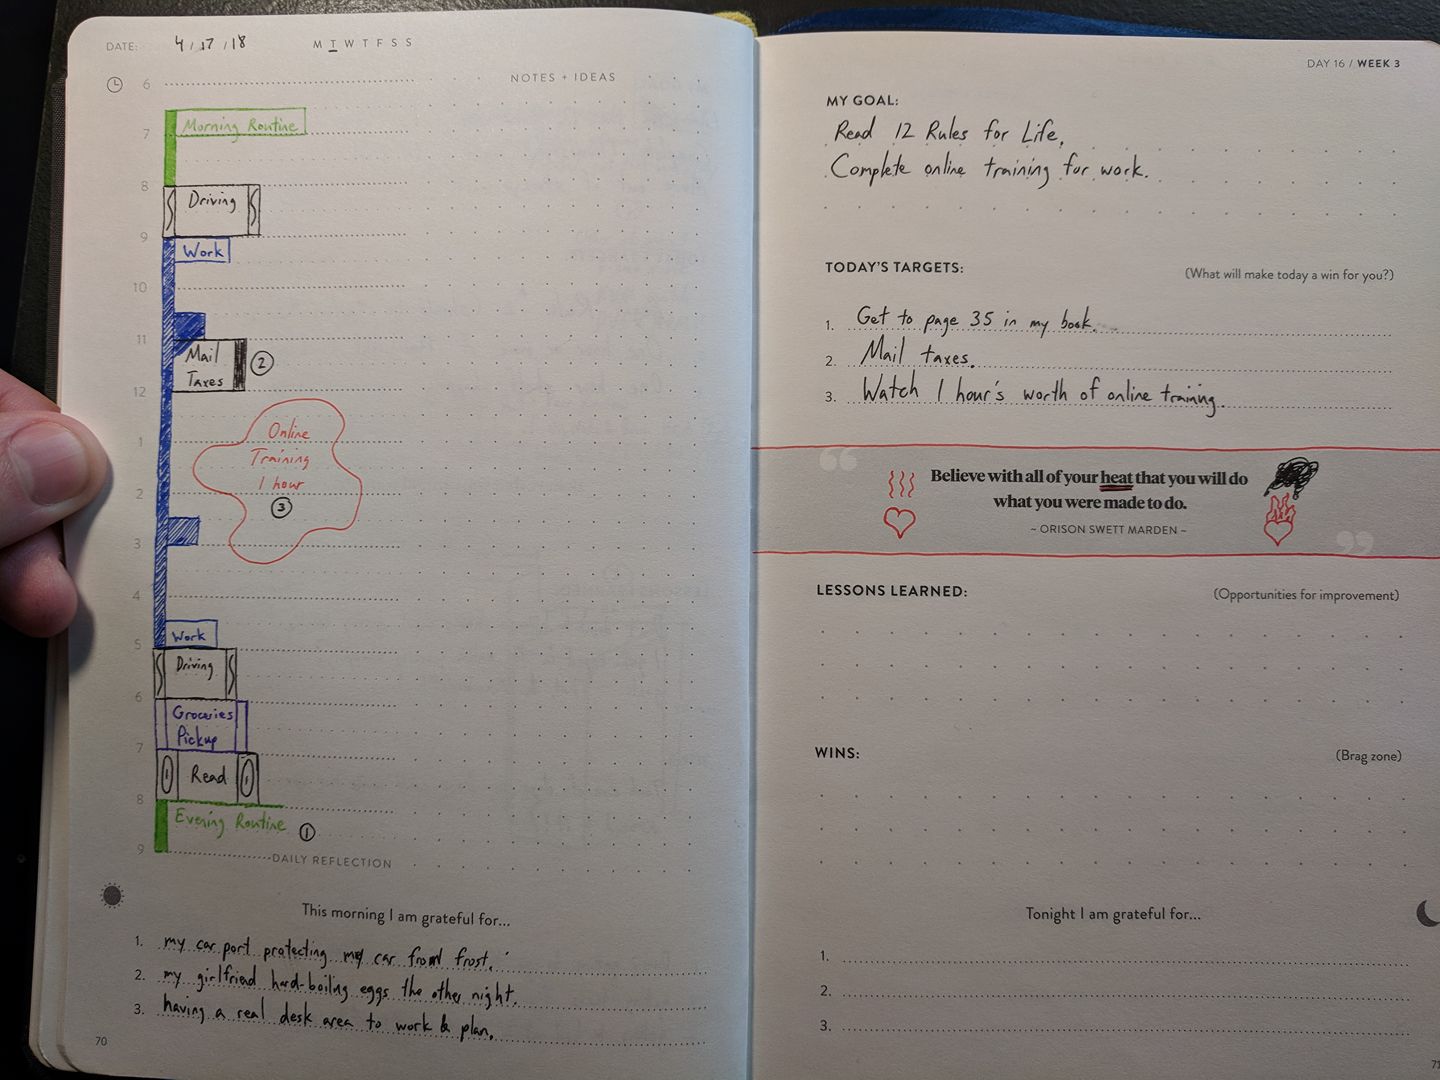 DATE: 4/17/18 M T W T F S S
6
NOTES + IDEAS
Morning Routine
7
8
Driving
9
Work
10
11
Mail
Taxes
2
12
Online
1
Training
1 hour
2
3
3
4
Work
5
Driving
6
Groceries
Pickup
7
Read
8
Evening Routine 1
9
DAILY REFLECTION
This morning I am grateful for...
1. my car port protecting my car from frost.
2. my girlfriend hard-boiling eggs the other night.
3. having a real desk area to work & plan.
70
DAY 16 / WEEK 3
MY GOAL:
Read 12 Rules for Life.
Complete online training for work.
TODAY'S TARGETS: (What will make today a win for you?)
1. Get to page 35 in my book.
2. Mail taxes.
3. Watch 1 hour's worth of online training.
“
Believe with all of your heat that you will do
what you were made to do.
~ ORISON SWETT MARDEN ~
”
LESSONS LEARNED: (Opportunities for improvement)
WINS: (Brag zone)
Tonight I am grateful for...
1.
2.
3.
71